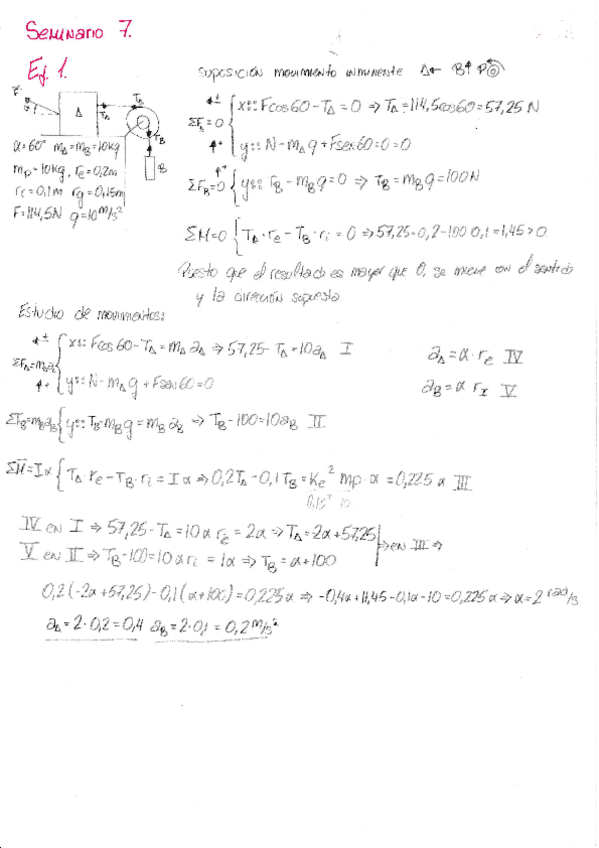 Seminario 7.
Ej 1.
suposición movimiento inminente A← B↑ P↺
F
α
A
T_A
T_A
T_B
B
α=60° m_A=m_B=10kg
m_p=10kg, r_e=0,2m
r_i=0,1m r_g=0,15m
F=114,5N g=10m/s²
ΣF_A=0 { x:: Fcos60-T_A=0 ⇒ T_A=114,5cos60=57,25 N
y:: N-m_A g+Fsen60=0=0
ΣF_B=0 { y:: T_B-m_B g=0 ⇒ T_B=m_B g=100N
ΣM=0 { T_A·r_e-T_B·r_i=0 ⇒ 57,25·0,2-100 0,1=1,45>0
Puesto que el resultado es mayor que 0, se mueve con el sentido
y la dirección supuesta.
Estudio de movimientos:
ΣF_A=m_A a_A { x:: Fcos60-T_A=m_A a_A ⇒ 57,25-T_A=10a_A I
a_A=α·r_e IV
y:: N-m_A g+Fsen60=0
a_B=α r_I V
ΣF_B=m_B a_B { y:: T_B-m_B g=m_B a_B ⇒ T_B-100=10a_B II
ΣM=Iα { T_A·r_e-T_B·r_i=Iα ⇒ 0,2T_A-0,1T_B=K_e² m_p·α=0,225α III
0,15² 10
IV en I ⇒ 57,25-T_A=10α r_e=2α ⇒ T_A=2α+57,25
V en II ⇒ T_B-100=10α r_i=1α ⇒ T_B=α+100
en III ⇒
0,2(-2α+57,25)-0,1(α+100)=0,225α ⇒ -0,4α+11,45-0,1α-10=0,225α ⇒ α=2 rad/s
a_A=2·0,2=0,4 a_B=2·0,1=0,2 m/s²